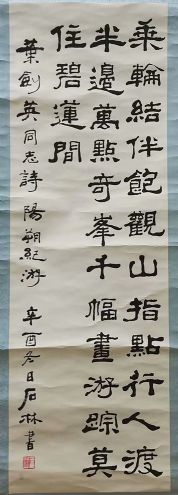 乘輪結伴飽觀山指點行人渡
半邊萬點奇峯千幅畫游踪莫
住碧蓮間
葉劍英同志詩陽朔紀游 辛酉冬日石林書